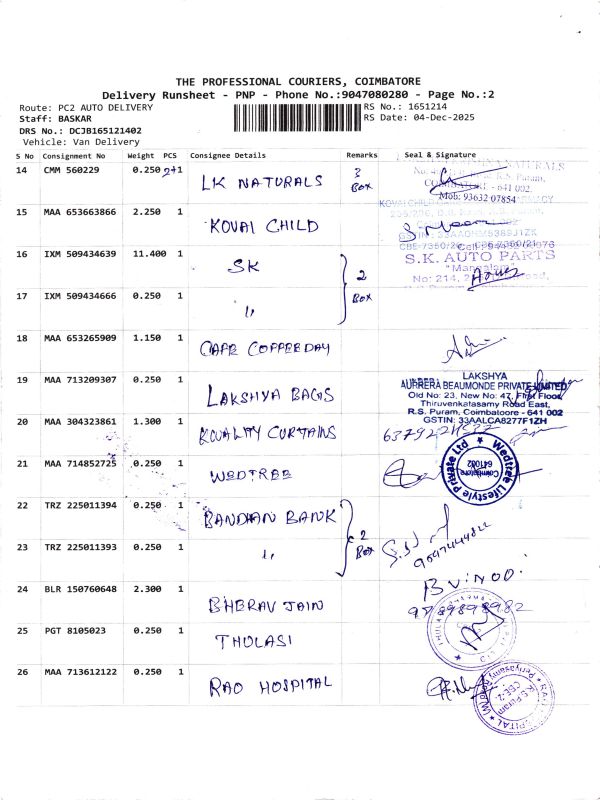 THE PROFESSIONAL COURIERS, COIMBATORE
Delivery Runsheet - PNP - Phone No.:9047080280 - Page No.:2
Route: PC2 AUTO DELIVERY
RS No.: 1651214
Staff: BASKAR
RS Date: 04-Dec-2025
DRS No.: DCJB165121402
Vehicle: Van Delivery
S No Consignment No Weight PCS Consignee Details Remarks Seal & Signature
14 CMM 560229 0.250 2+1 LK NATURALS 3 Box
R.S. Puram,
641 002.
Mob: 93632 07854
15 MAA 653663866 2.250 1 KOVAI CHILD
16 IXM 509434639 11.400 1 SK 2 Box
S.K. AUTO PARTS
No: 214,
17 IXM 509434666 0.250 1 "
18 MAA 653265909 1.150 1 CAFE COFFEE DAY
19 MAA 713209307 0.250 1 LAKSHYA BAGS
LAKSHYA
AURRERA BEAUMONDE PRIVATE LIMITED
Old No: 23, New No: 47, First Floor
Thiruvenkatasamy Road East,
R.S. Puram, Coimbatoore - 641 002
GSTIN: 33AALCA8277F1ZH
20 MAA 304323861 1.300 1 KOVALITY CURTAINS
21 MAA 714852725 0.250 1 WEDTREE
Wedtree Lifestyle Private Ltd
Coimbatore
641002
22 TRZ 225011394 0.250 1 BANDHAN BANK 2 Box
23 TRZ 225011393 0.250 1 "
9597444822
24 BLR 150760648 2.300 1 BHERAV JAIN
B VINOD.
9789898982
25 PGT 8105023 0.250 1 THULASI
26 MAA 713612122 0.250 1 RAO HOSPITAL
R.S Puram
CBE-2.